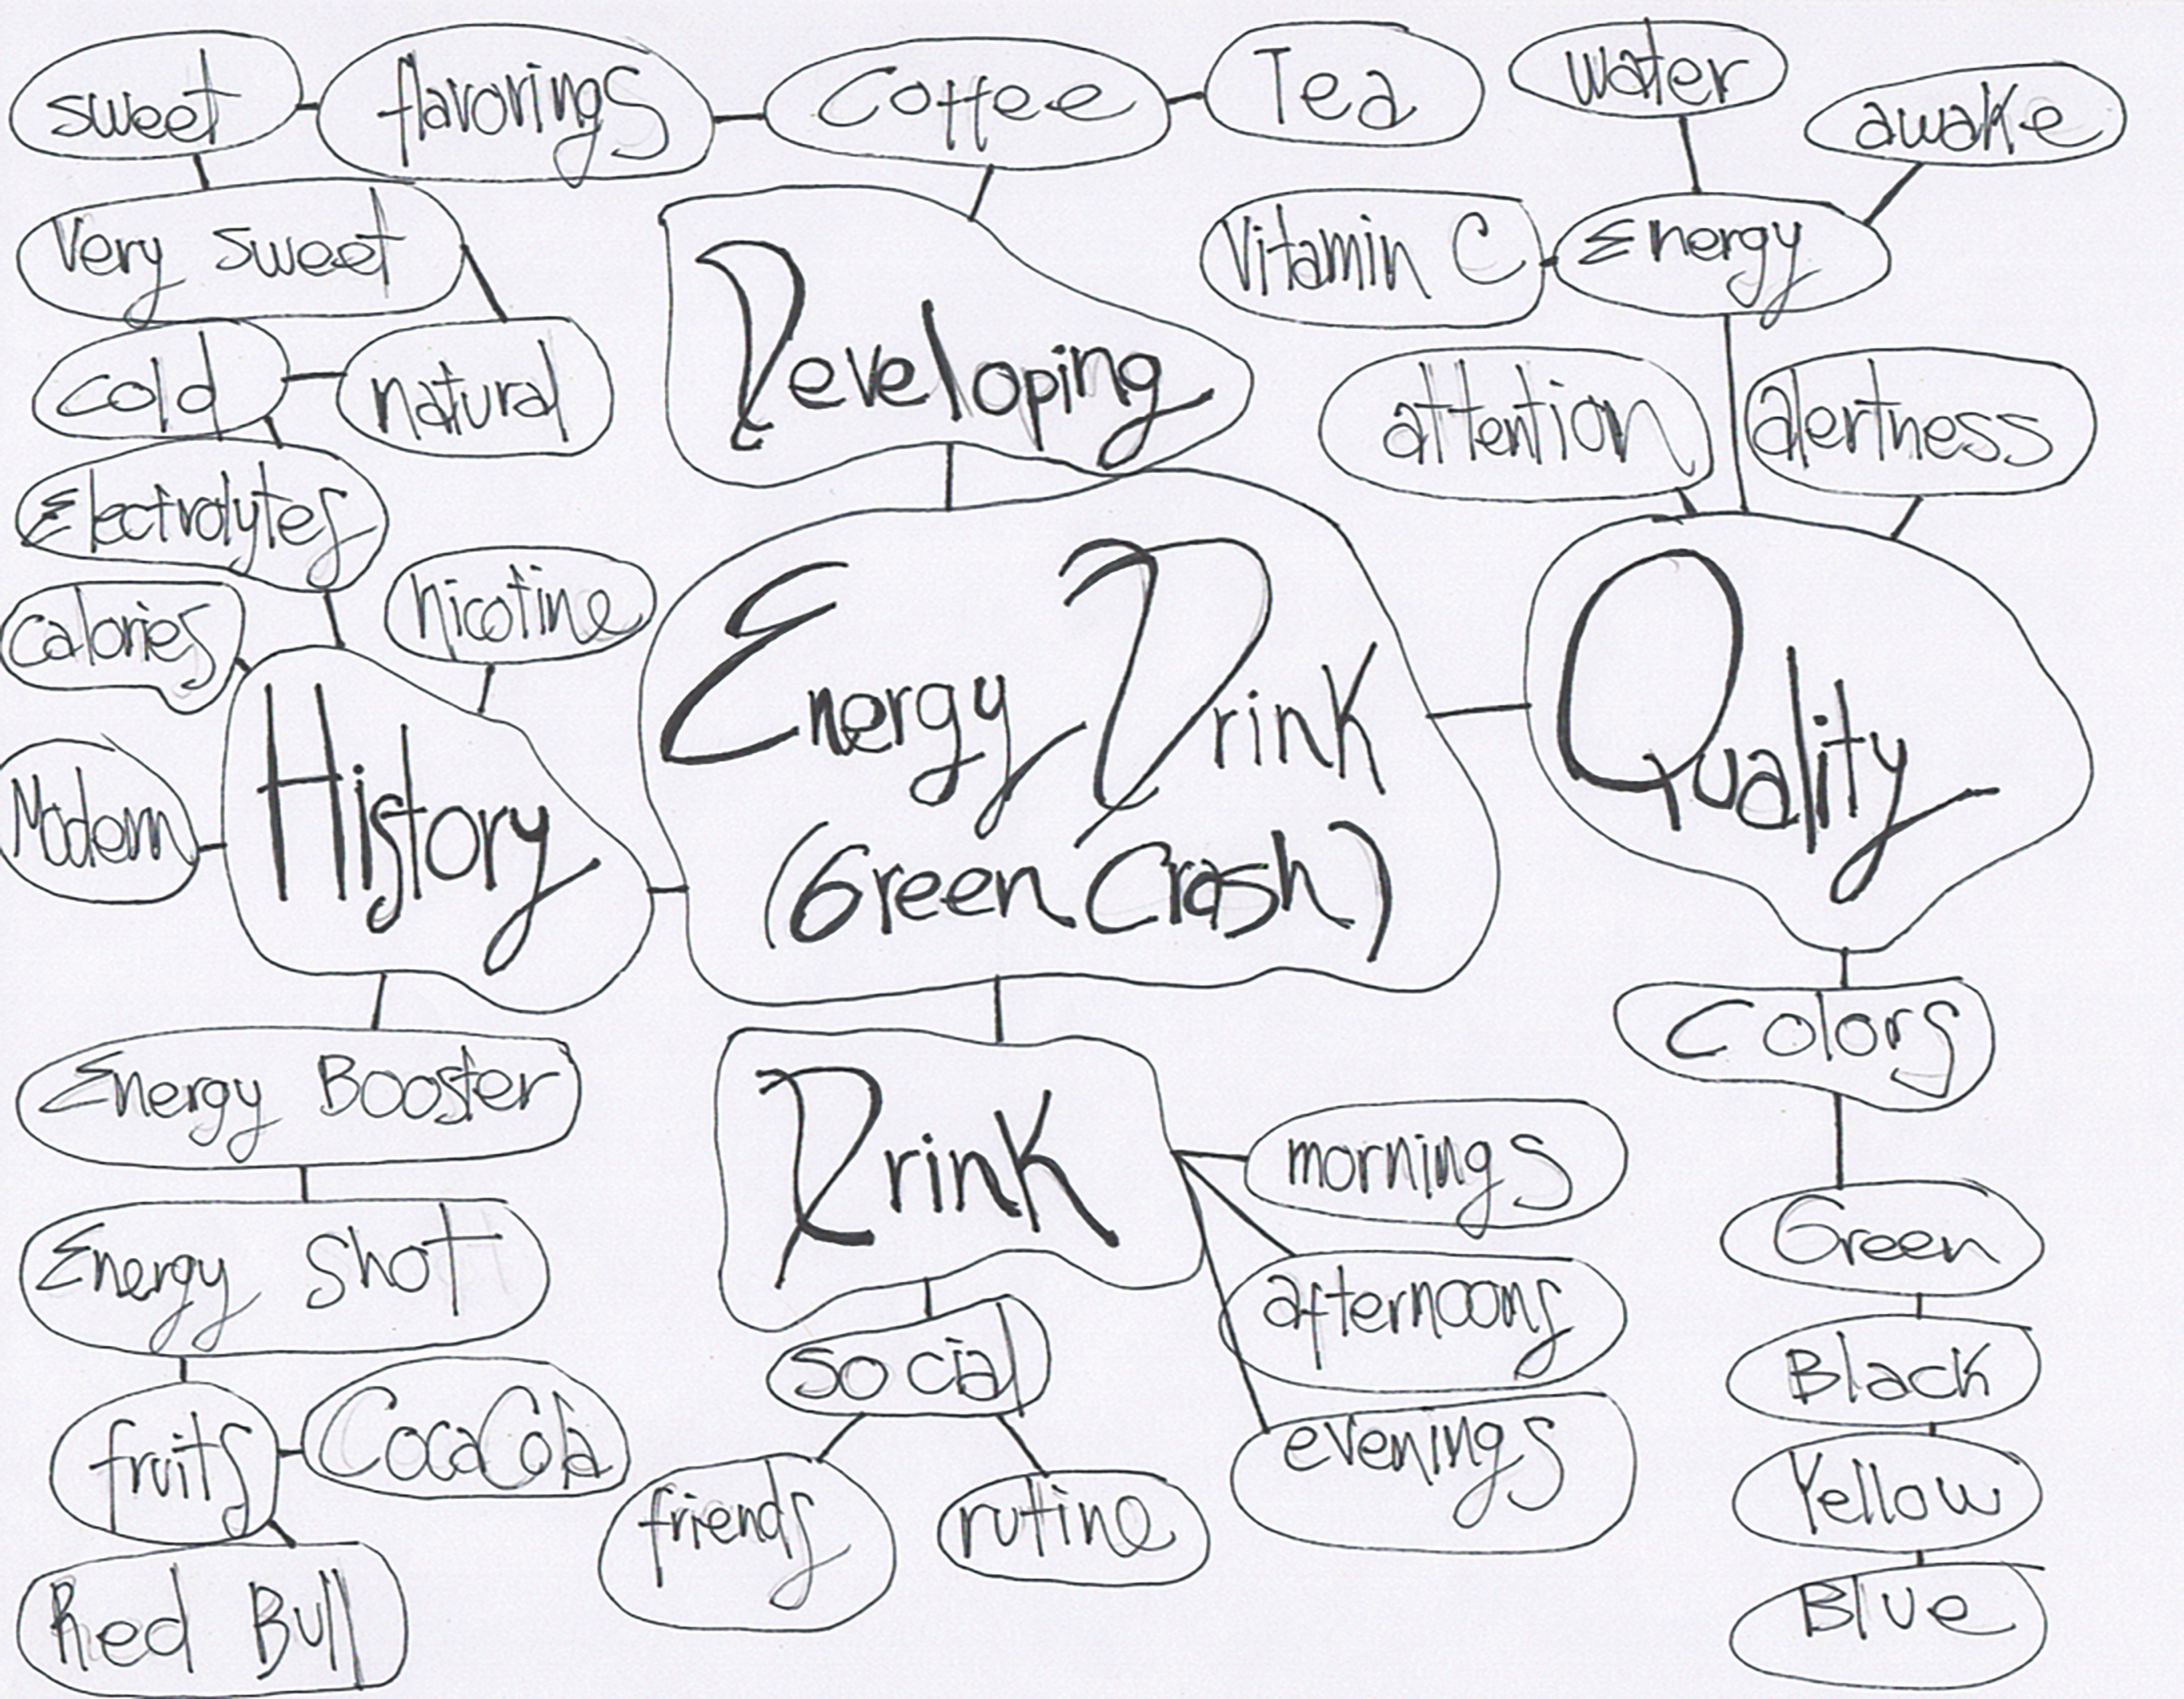 sweet
flavorings
Coffee
Tea
water
awake
Very sweet
Vitamin C
Energy
cold
natural
Developing
attention
alertness
Electrolytes
Calories
nicotine
Energy Drink
(Green Crash)
Quality
History
Modern
Colors
Energy Booster
Drink
mornings
Green
Energy shot
afternoons
social
Black
fruits
CocaCola
evenings
friends
rutine
Yellow
Red Bull
Blue